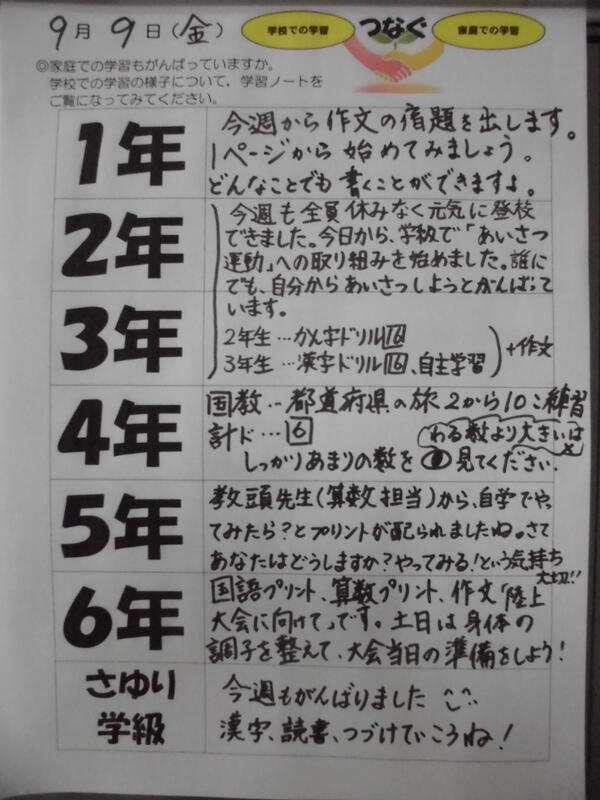 9月9日(金)
学校での学習 つなぐ 家庭での学習
◎家庭での学習もがんばっていますか。
学校での学習の様子について，学習ノートを
ご覧になってみてください。
1年
今週から作文の宿題を出します。
1ページから始めてみましょう。
どんなことでも書くことができますよ。
2年
3年
今週も全員休みなく元気に登校
できました。今日から、学級で「あいさつ
運動」への取り組みを始めました。誰に
でも、自分からあいさつしようとがんばって
います。
2年生…かん字ドリル16
3年生…漢字ドリル16、自主学習
+作文
4年
国教…都道府県の旅2から10こ練習
計ド…6
わる数より大きいは×
しっかりあまりの数を見てください。
5年
教頭先生(算数担当)から、自学でやっ
てみたら?とプリントが配られましたね。さて
あなたはどうしますか?やってみる!という気持ち
大切!!
6年
国語プリント、算数プリント、作文「陸上
大会に向けて」です。土日は身体の
調子を整えて、大会当日の準備をしよう!
さゆり
学級
今週もがんばりました
漢字、読書、つづけていこうね!